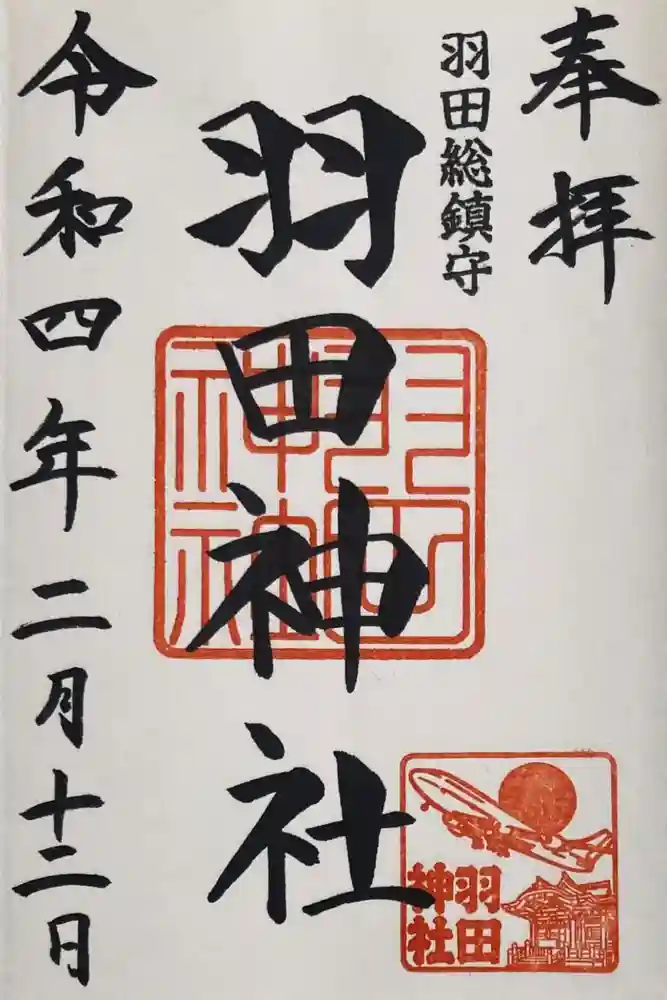 奉拝
羽田総鎮守
羽田神社
羽田神社
令和四年二月十二日
羽田
神社